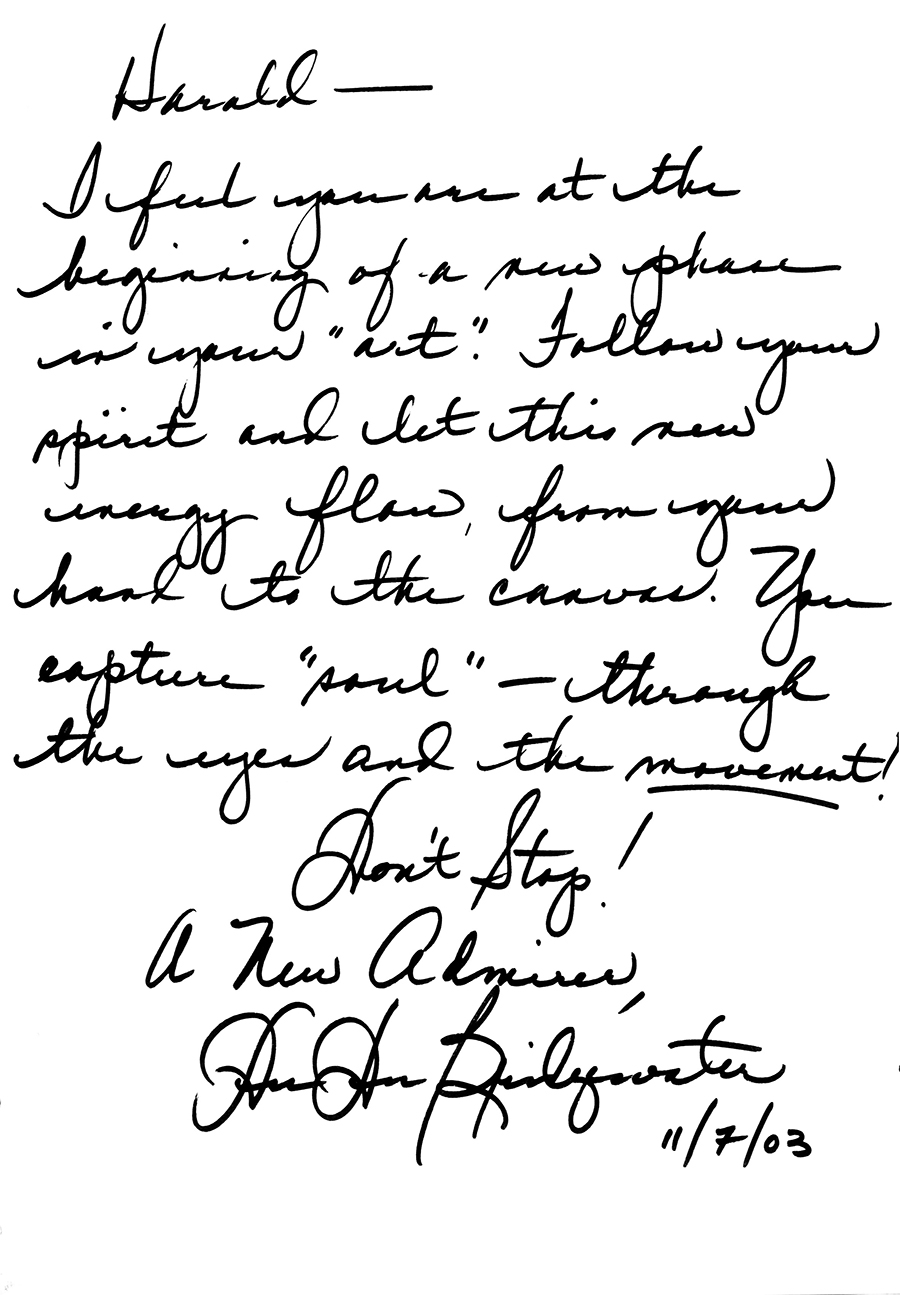 Harald —
I feel you are at the
beginning of a new phase
in your "art". Follow your
spirit and let this new
energy flow, from your
hand to the canvas. You
capture "soul" — through
the eyes and the movement!
Don't Stop!
A New Admirer,
Dee Dee Bridgewater
11/7/03